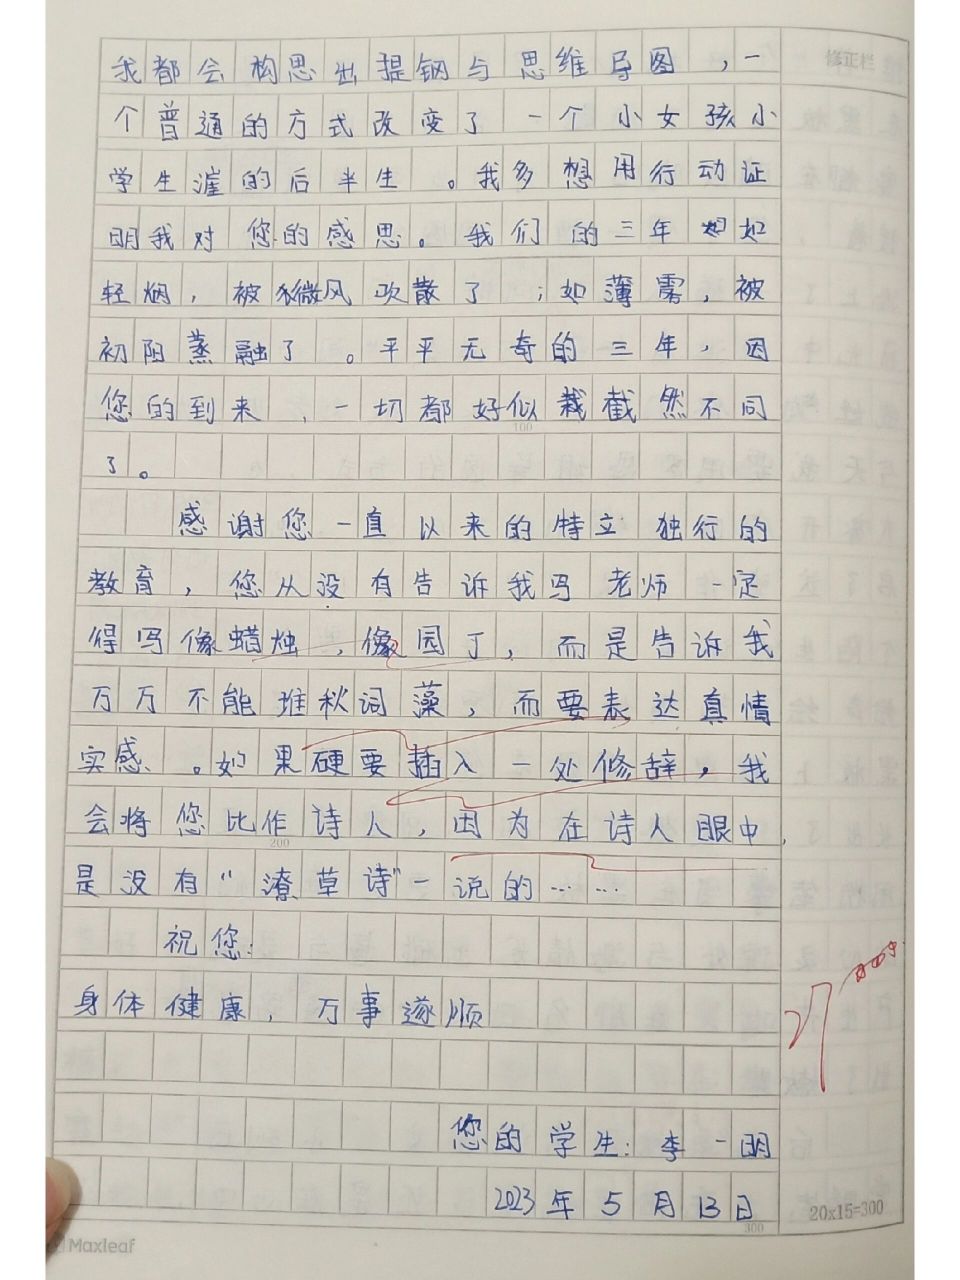 修正栏
我都会构思出提钢与思维导图,一
个普通的方式改变了一个小女孩小
学生漄的后半生。我多想用行动证
明我对您的感思。我们的三年如
轻烟,被微风吹散了;如薄雾,被
初阳蒸融了。平平无奇的三年,因
您的到来,一切都好似截然不同
100
了。
感谢您一直以来的特立独行的
教育,您从没有告诉我写老师一定
得写像蜡烛,像园丁,而是告诉我
万万不能堆秋词藻,而要表达真情
实感。如果硬要插入一处修辞,我
会将您比作诗人,因为在诗人眼中,
200
是没有“潦草诗”一说的……
祝您:
身体健康,万事遂顺
您的学生:李一明
2023年5月13日
300
20x15=300
Maxleaf